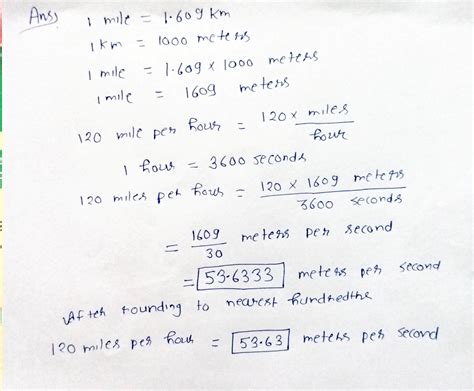 Ans) 1 mile = 1.609 km
1 km = 1000 meters
1 mile = 1.609 × 1000 meters
1 mile = 1609 meters
120 mile per hour = 120 × miles / hour
1 hour = 3600 seconds
120 miles per hour = 120 × 1609 meters / 3600 seconds
= 1609 / 30 meters per second
= 53.6333 meters per second
After rounding to nearest hundredths
120 miles per hour = 53.63 meters per second